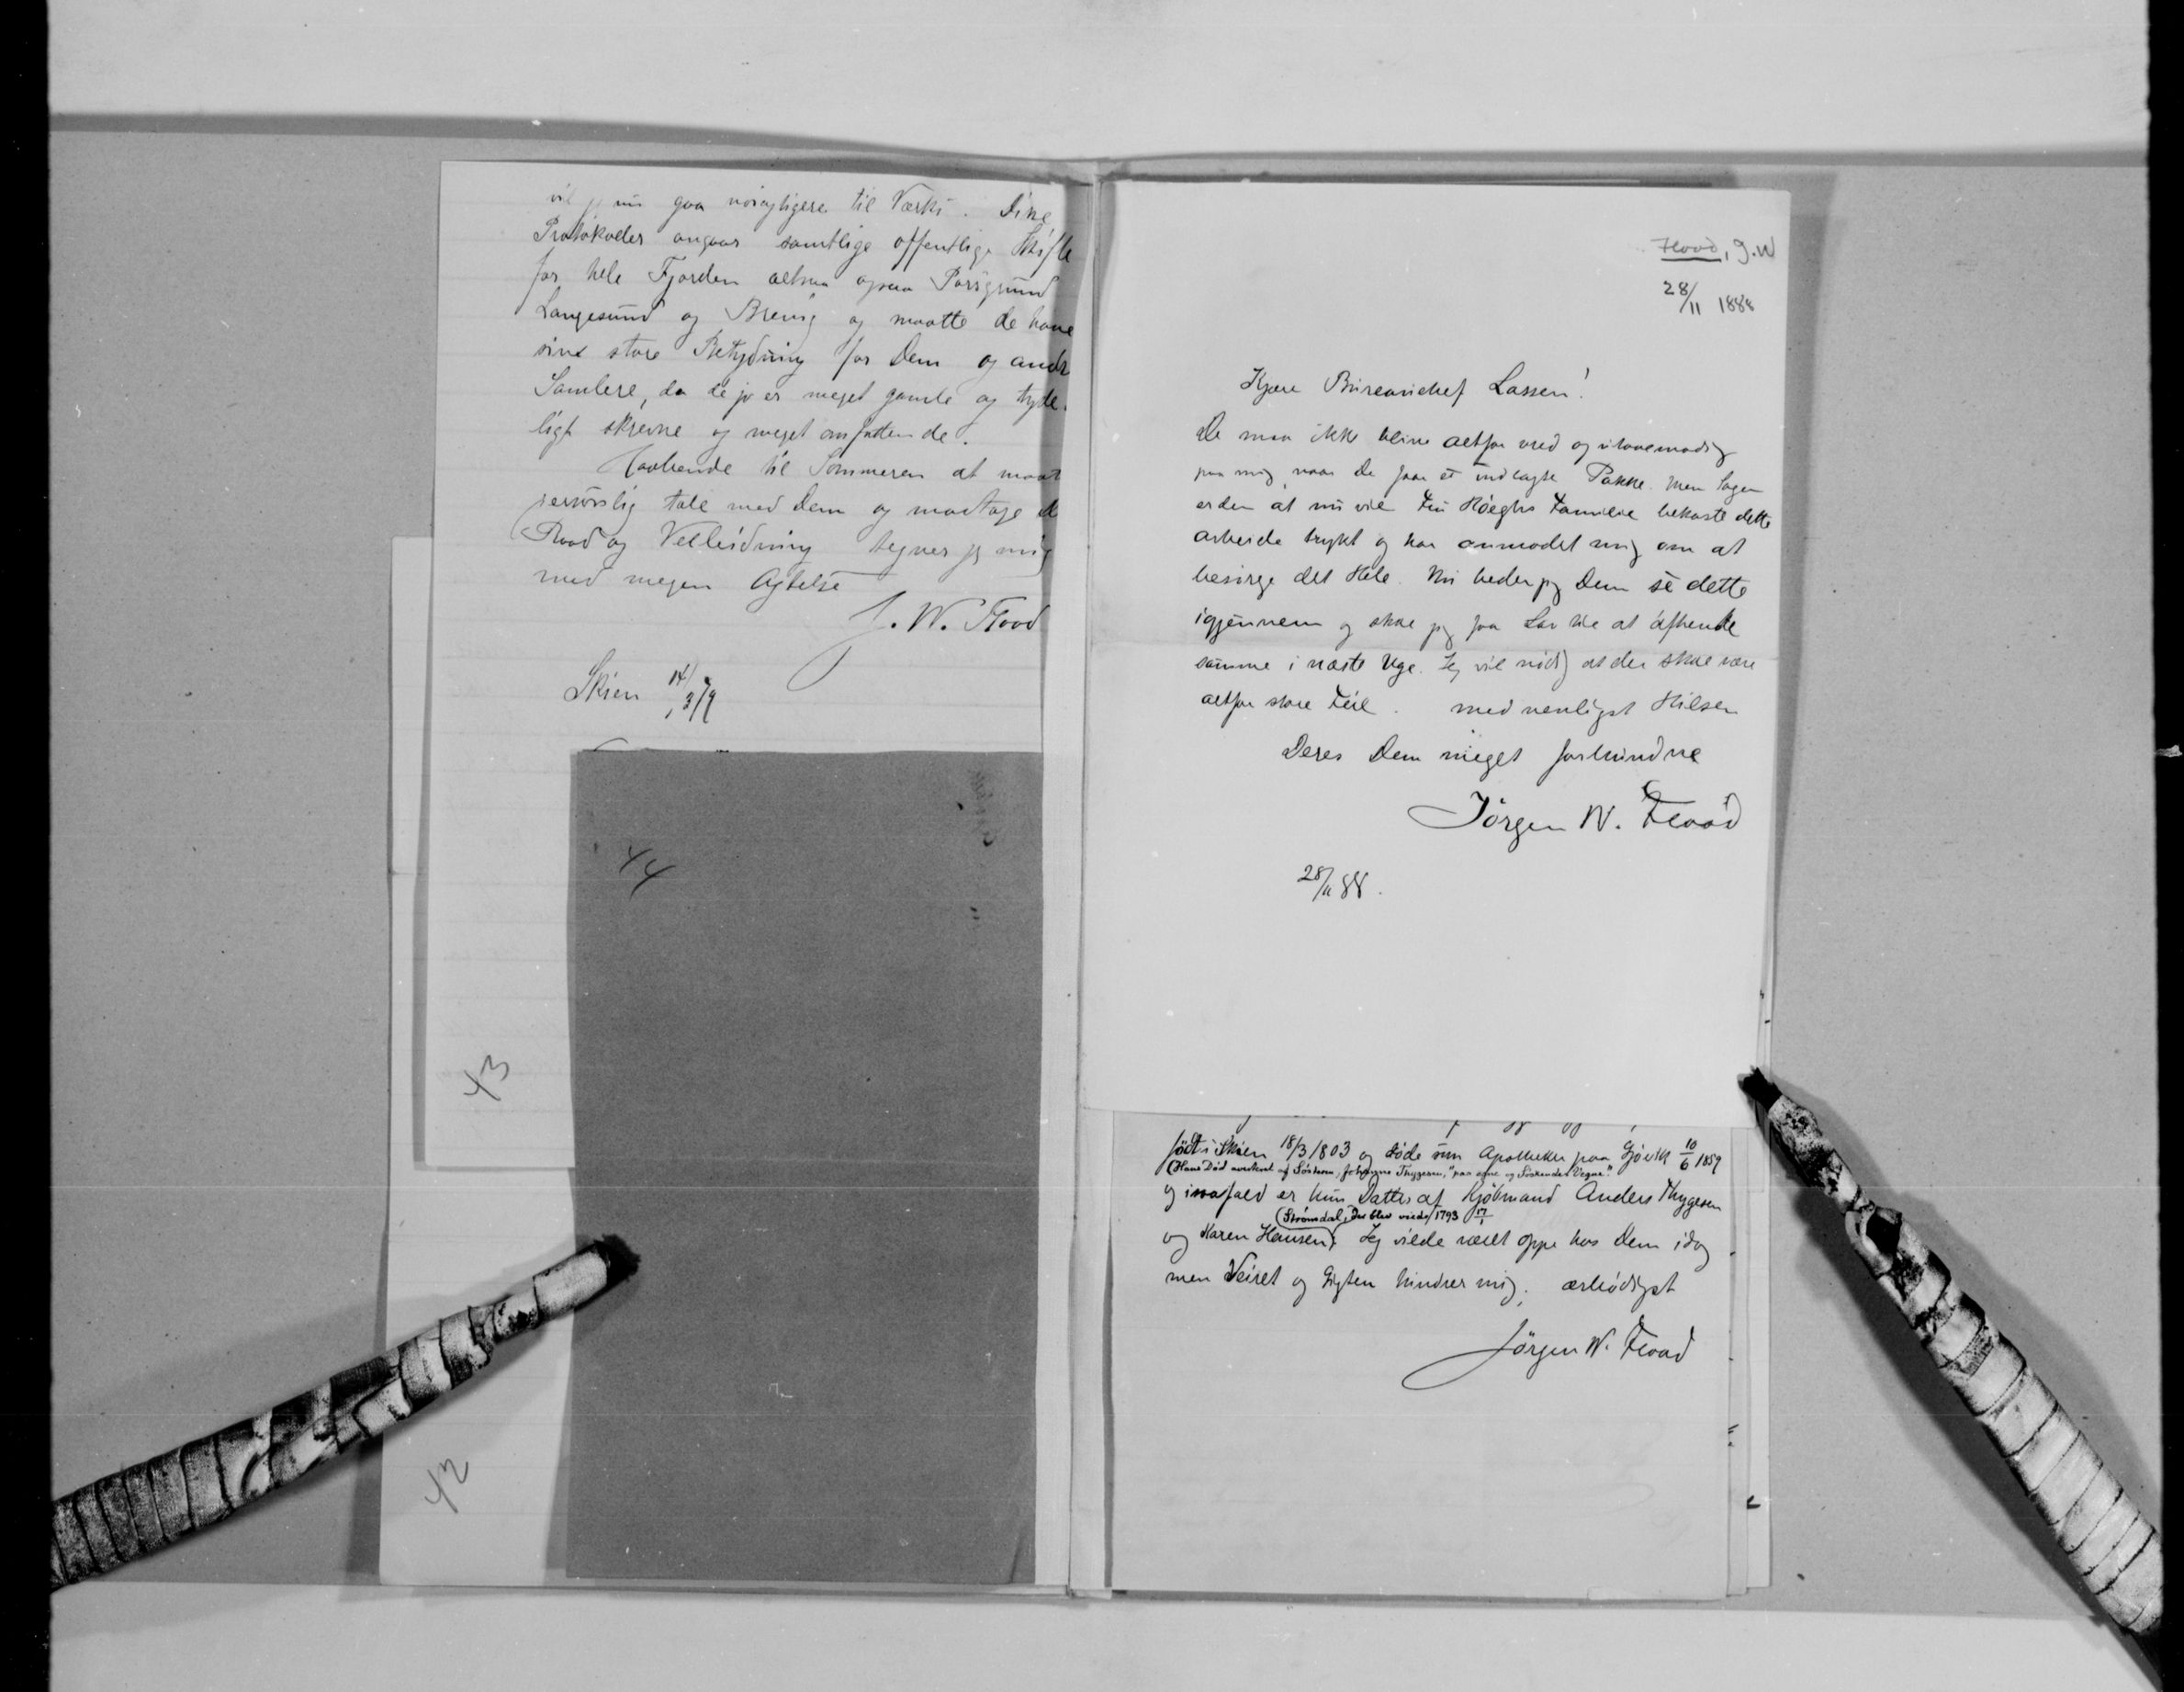 vil jeg nu gaa nøiagtigere til Værks. Disse
Protokoller angaar samtlige offentlige Skifte
for hele Fjorden altsaa ogsaa Porsgrund
Langesund og Brevig og maatte de have
sin store Betydning for Dem og andre
Samlere, da de jo er meget gamle og tyde-
ligt skrevne og meget omfattende.
Haabende til Sommeren at maat
personlig tale med Dem og modtage
Raad og Veiledning tegner jeg mig
med megen Agtelse
J. W. Flood
Skien 14/3 79
44
43
42
Flood, J.W
28/11 1888
Kjære Bureauchef Lassen!
De maa ikke blive altfor vred og utaalmodig
paa mig, naar De faar et indlagte Pakke. Men Sagen
er den at nu vil Fru Høeghs Familie bekoste dette
arbeide trykt og har anmodet mig om at
besørge det Hele. Nu beder jeg Dem se dette
igjennem og skal jeg faa Lov til at afhende
samme i næste Uge. Jeg vil nødig at der skal være
altfor store Feil. med venligst Hilsen
Deres Dem meget forbundne
Jörgen W. Flood
28/11 88.
født i Skien 18/3 1803 og døde som Apotheker paa Gjøvik 10/6 1859
(Hans Död averteret af Søsteren, Johanne Thygesen, "paa egne og Söskendes Vegne."
og isaafald er hun Datter af Kjøbmand Anders Thygesen
(Strømdal, der blev viede 1793 17/1
og Karen Hansen) Jeg vilde været oppe hos Dem idag
men Veiret og Gigten hindrer mig. ærbødigst
Jörgen W. Flood